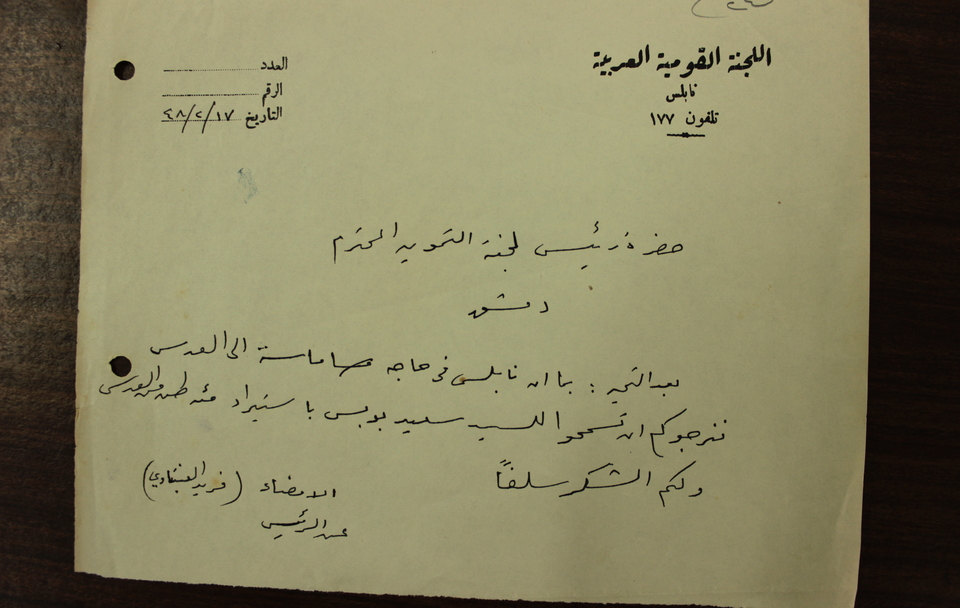 اللجنة القومية العربية
نابلس
تلفون ١٧٧
العدد
الرقم
التاريخ ٤٨/٢/١٧
حضرة رئيس لجنة التموين المحترم
دمشق
بعد التحية : بما ان نابلس في حاجه ماسة الى العدس
نرجوكم ان تسمحوا للسيد سعيد بوبس باستيراد مئة طن من العدس
ولكم الشكر سلفاً
الامضاء (فريد العنبتاوي)
عن الرئيس